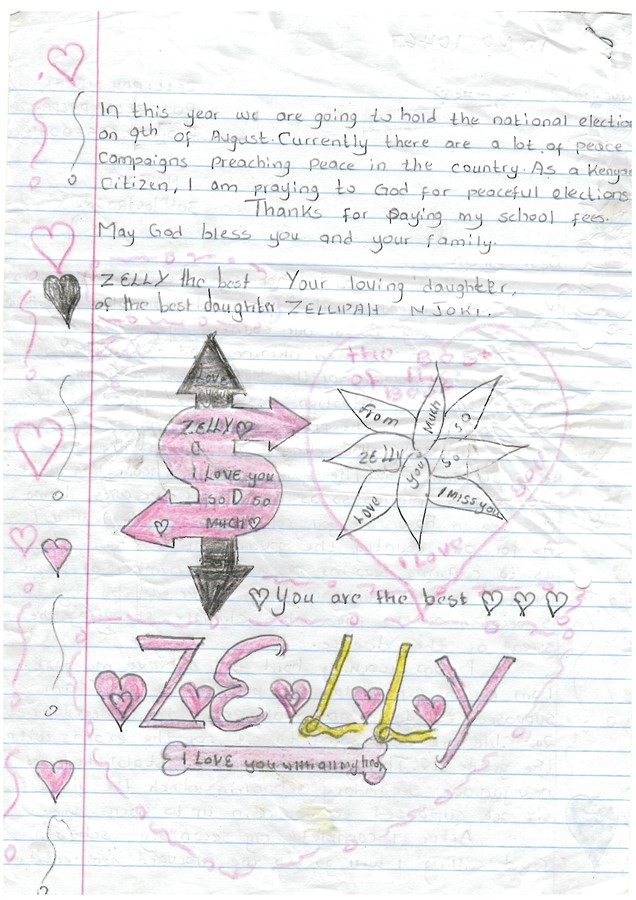 In this year we are going to hold the national election
on 9th of August. Currently there are a lot of peace
campaigns preaching peace in the country. As a Kenyan
Citizen, I am praying to God for peaceful elections.
Thanks for paying my school fees.
May God bless you and your family.
ZELLY the best Your loving daughter,
of the best daughter ZELLIPAH NJOKI.
the Best
of the
Best
Love
ZELLY
I LOVE you
SO D SO
MUCH
From
Much
SO
ZELLY
you
SO
LOVE
I MISS you
you
I Love
You are the best
ZELLY
I LOVE you with all my